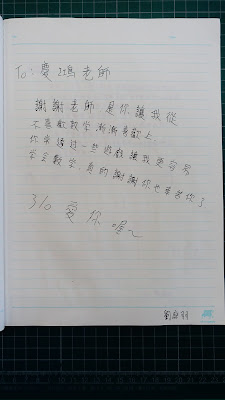 To：慶鴻老師
謝謝老師 是你讓我從
不喜歡數學漸漸喜歡上.
你安插一些遊戲讓我更容易
學會數學,真的謝謝你也辛苦你了
310 愛你喔~